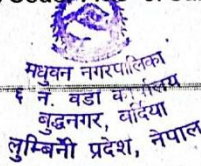 मधुवन नगरपालिका
६ नं. वडा कार्यालय
बुद्धनगर, बर्दिया
लुम्बिनी प्रदेश, नेपाल